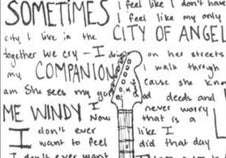 SOMETIMES I feel like I don't have
I feel like my only
city I live in the CITY OF ANGEL
together we cry - I dri on her streets
my COMPANION I walk through
am She sees my go cause she kno
ME WINDY I od deeds and
Now never worry
I don't ever that is a
want to feel like I
I don't ever want did that day